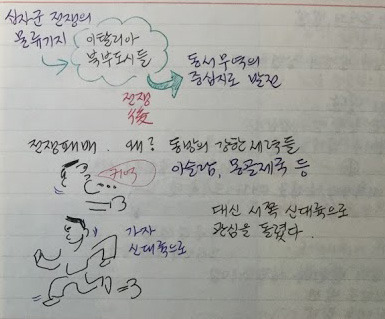 십자군 전쟁의
물류기지
이탈리아
북부도시들
동서무역의
중심지로 발전
전쟁
後
전쟁패배. 왜? 동방의 강한 세력들
이슬람, 몽골제국 등
대신 서쪽 신대륙으로
관심을 돌렸다.
가자
신대륙으로